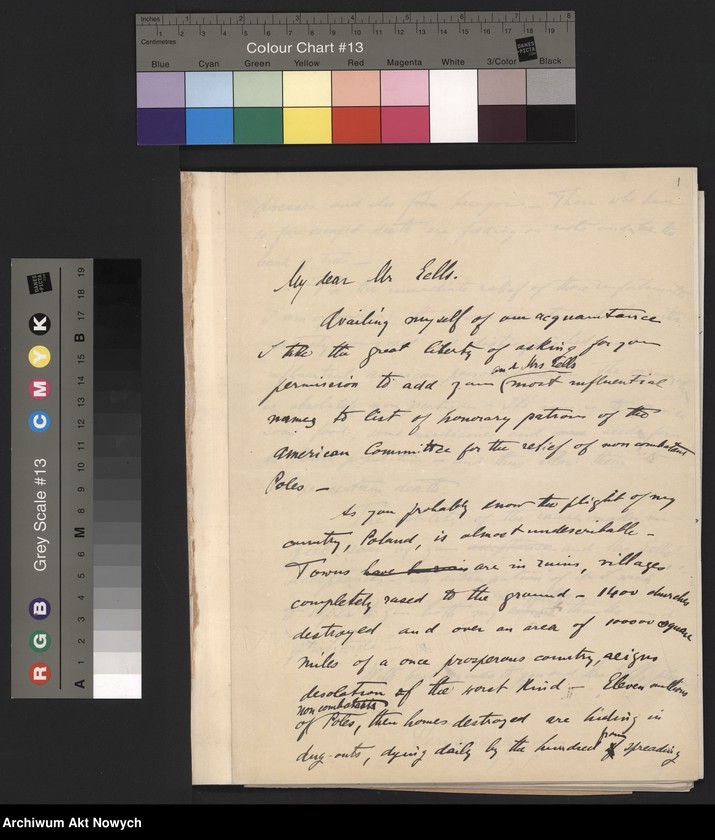 Inches 1 2 3 4 5 6 7 8
Centimetres 1 2 3 4 5 6 7 8 9 10 11 12 13 14 15 16 17 18 19
Colour Chart #13
DANES PICTA
Blue Cyan Green Yellow Red Magenta White 3/Color Black
DANES PICTA
R G B Grey Scale #13 C M Y K
A 1 2 3 4 5 6 M 8 9 10 11 12 13 14 15 B 17 18 19
1
My dear Mr Eells.
Availing myself of our acquaintance
I take the great liberty of asking for your
and Mrs Eells
permission to add your (most influential
names to list of honorary patrons of the
American Committee for the relief of non combatant
Poles –
As you probably know the plight of my
country, Poland, is almost undescribable –
Towns are in ruins, villages
completely rased to the ground – 1400 churches
destroyed and over an area of 100000 square
miles of a once prosperous country, reigns
desolation of the worst kind – Eleven millions
non combatants
of Poles, their homes destroyed are hiding in
from
dug-outs, dying daily by the hundred spreading
Archiwum Akt Nowych